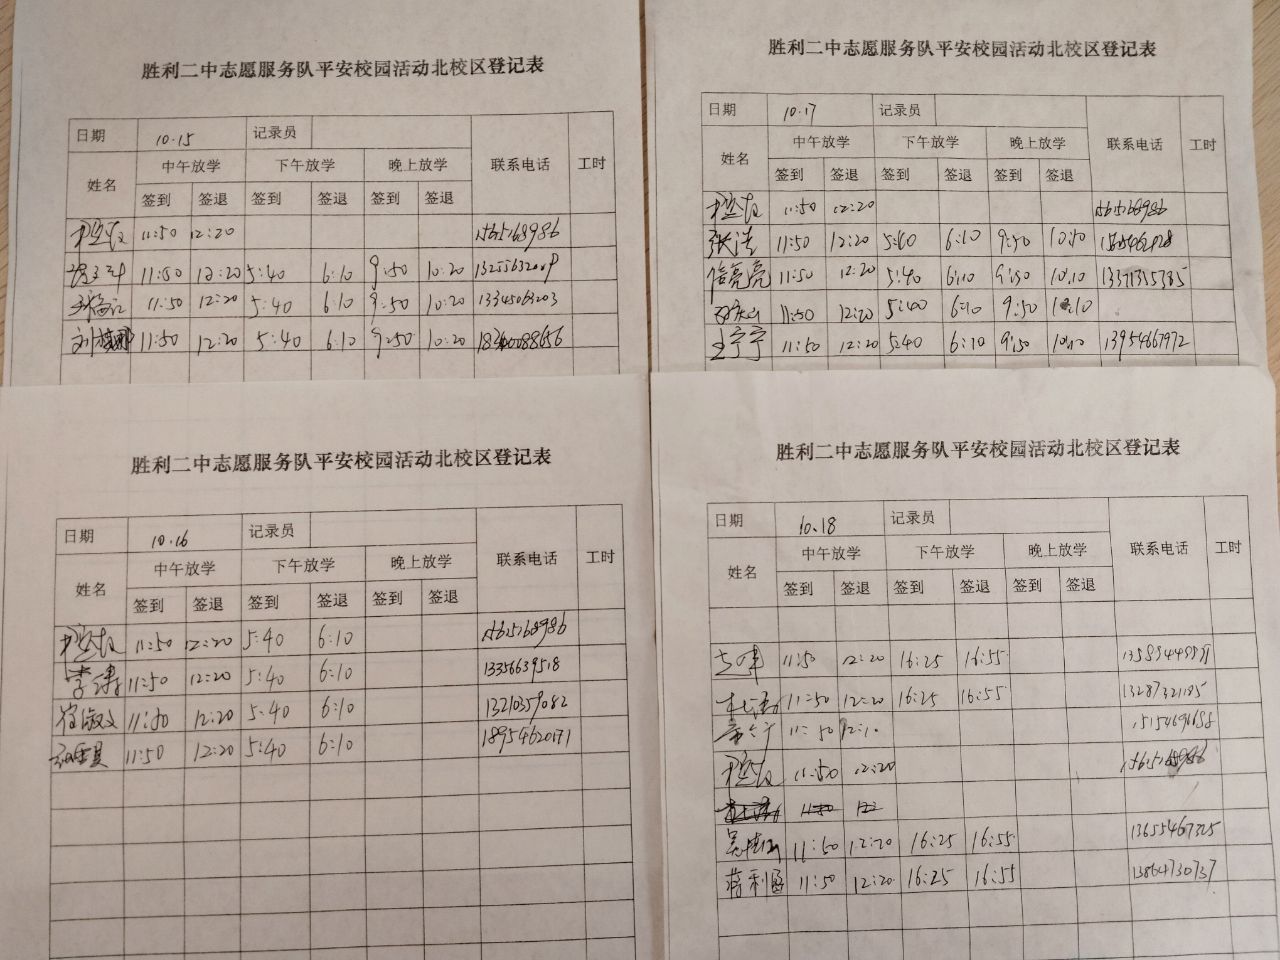 胜利二中志愿服务队平安校园活动北校区登记表
日期 10.15 记录员 联系电话 工时
姓名 中午放学 下午放学 晚上放学
签到 签退 签到 签退 签到 签退
11:50 12:20 15615168986
11:50 12:20 5:40 6:10 9:50 10:20
11:50 12:20 5:40 6:10 9:50 10:20 13345063203
11:50 12:20 5:40 6:10 9:50 10:20
胜利二中志愿服务队平安校园活动北校区登记表
日期 10.17 记录员 联系电话 工时
姓名 中午放学 下午放学 晚上放学
签到 签退 签到 签退 签到 签退
11:50 12:20 15615168986
张浩 11:50 12:20 5:40 6:10 9:50 10:10
信亮亮 11:50 12:20 5:40 6:10 9:50 10:10 13371355385
11:50 12:20 5:40 6:10 9:50 10:10
王宁宁 11:50 12:20 5:40 6:10 9:50 10:10 13954667972
胜利二中志愿服务队平安校园活动北校区登记表
日期 10.16 记录员 联系电话 工时
姓名 中午放学 下午放学 晚上放学
签到 签退 签到 签退 签到 签退
11:50 12:20 5:40 6:10 15615168986
李涛 11:50 12:20 5:40 6:10 13356639518
11:50 12:20 5:40 6:10 13210359082
11:50 12:20 5:40 6:10 18954620171
胜利二中志愿服务队平安校园活动北校区登记表
日期 10.18 记录员 联系电话 工时
姓名 中午放学 下午放学 晚上放学
签到 签退 签到 签退 签到 签退
11:50 12:20 16:25 16:55
11:50 12:20 16:25 16:55 13287321185
11:50 12:10 15154696688
11:50 12:20
11:50
11:50 12:20 16:25 16:55 13655467325
蒋利国 11:50 12:20 16:25 16:55 13864730737